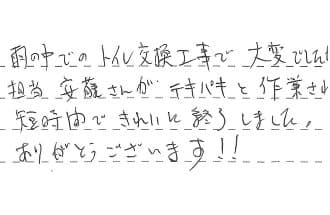 雨の中での トイレ交換工事で 大変でした
担当 安藤さんが テキパキと 作業さ
短時間で きれいに 終了しました。
ありがとうございます!!